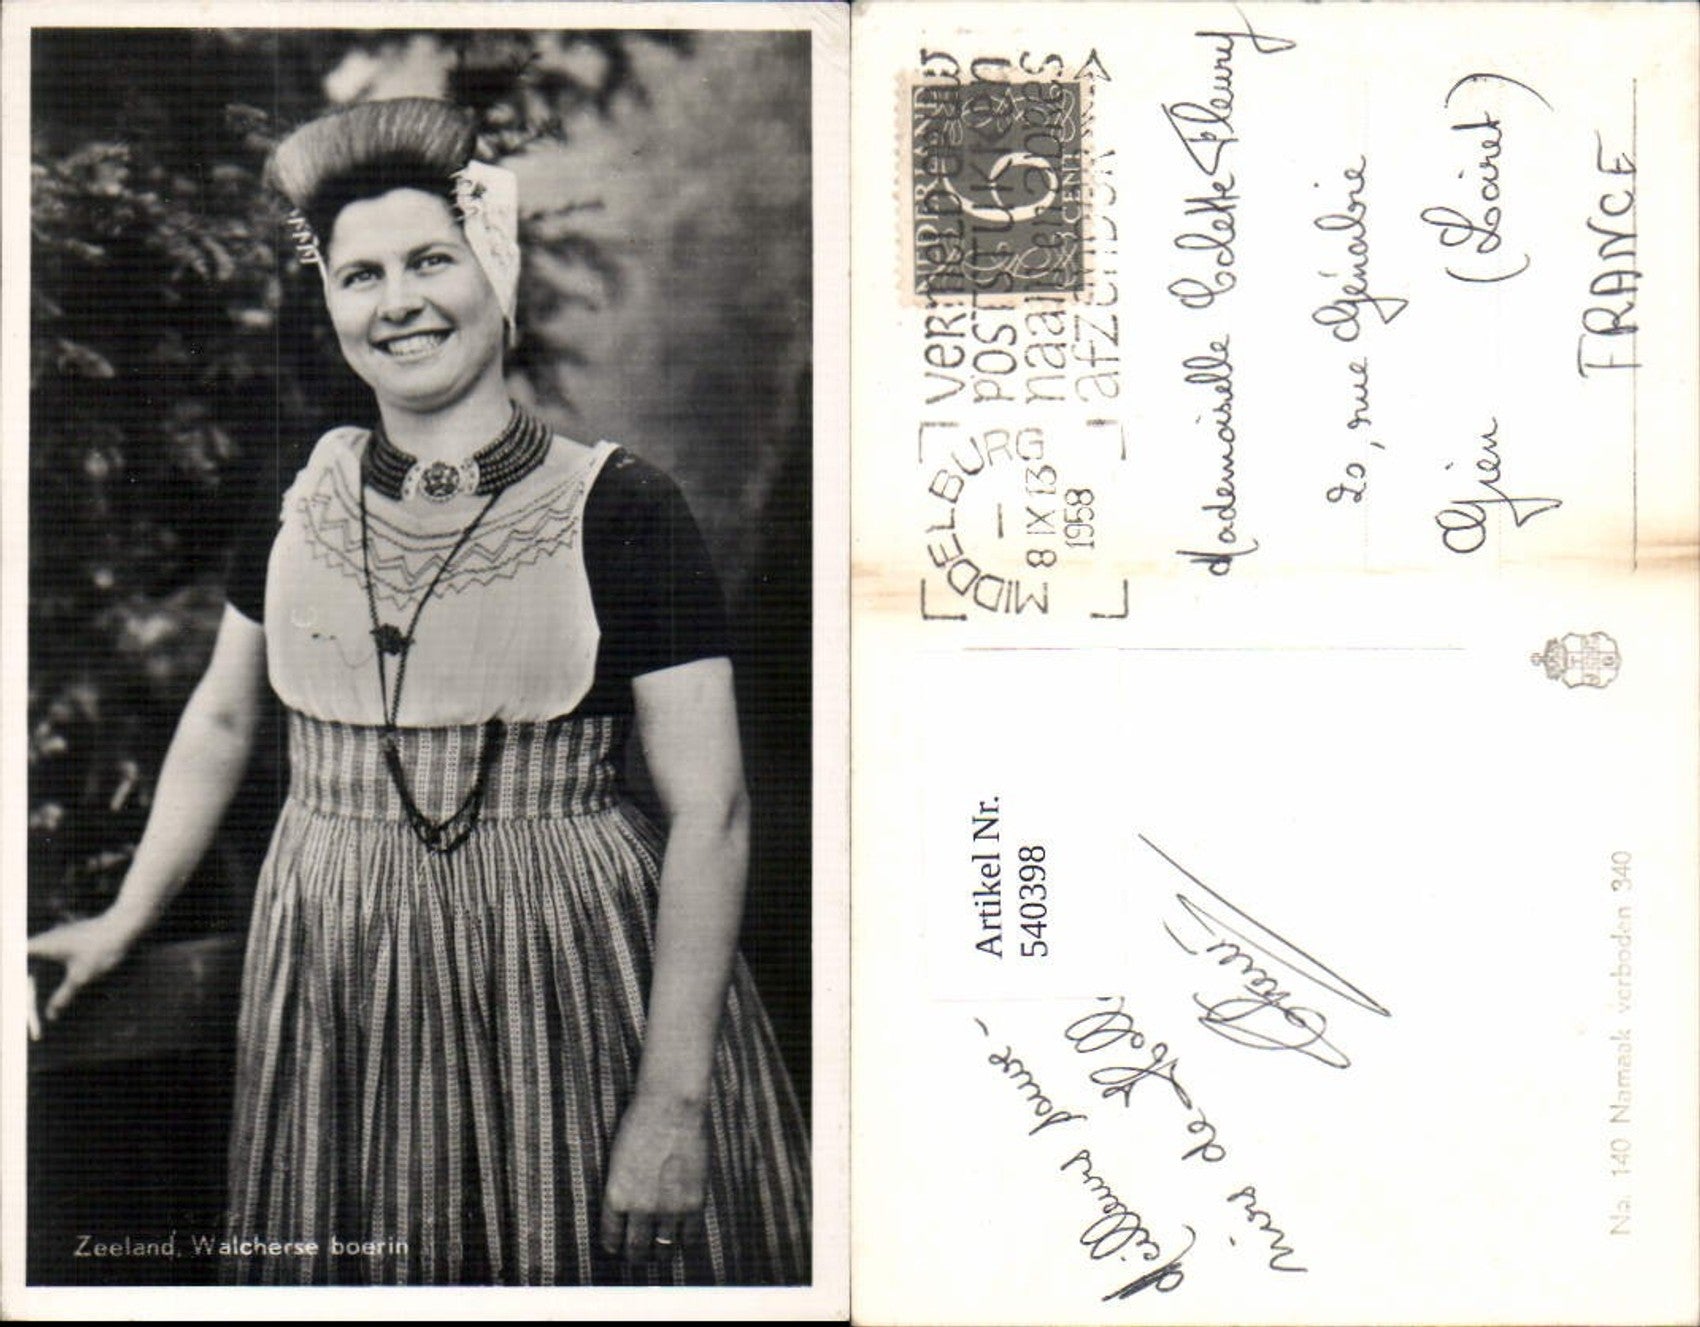 Zeeland, Walcherse boerin
NEDERLAND
6
CENT
vermeld uw
POSTSTUKKEN
naam en adres
afzender
MIDDELBURG
8 IX 13
1958
Mademoiselle Colette Fleury
20, rue Génabie
Gien (Loiret)
FRANCE
Artikel Nr.
540398
Meilleurs souve-
nirs de Holl
No. 140 Namaak verboden 340